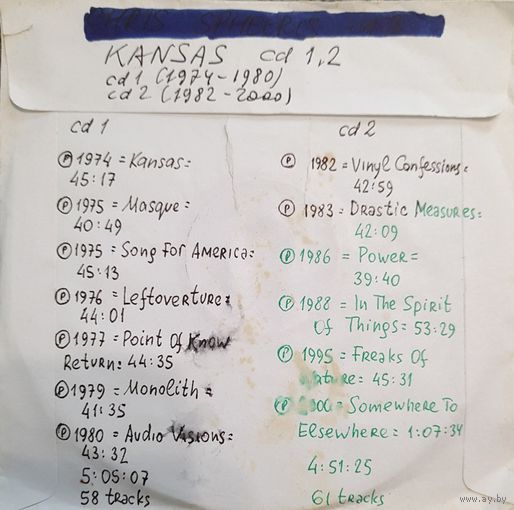 KANSAS cd 1,2
cd 1 (1974-1980)
cd 2 (1982-2000)
cd 1
Ⓟ 1974 = Kansas=
45:17
Ⓟ 1975 = Masque=
40:49
Ⓟ 1975 = Song For America=
45:13
Ⓟ 1976 = Leftoverture=
44:01
Ⓟ 1977 = Point Of Know
Return= 44:35
Ⓟ 1979 = Monolith =
41:35
Ⓟ 1980 = Audio Visions=
43:32
5:05:07
58 tracks
cd 2
Ⓟ 1982 = Vinyl Confessions=
42:59
Ⓟ 1983 = Drastic Measures=
42:09
Ⓟ 1986 = Power=
39:40
Ⓟ 1988 = In The Spirit
Of Things= 53:29
Ⓟ 1995 = Freaks Of
Nature= 45:31
Ⓟ 2000 = Somewhere To
Elsewhere= 1:07:34
4:51:25
61 tracks
www.ay.by